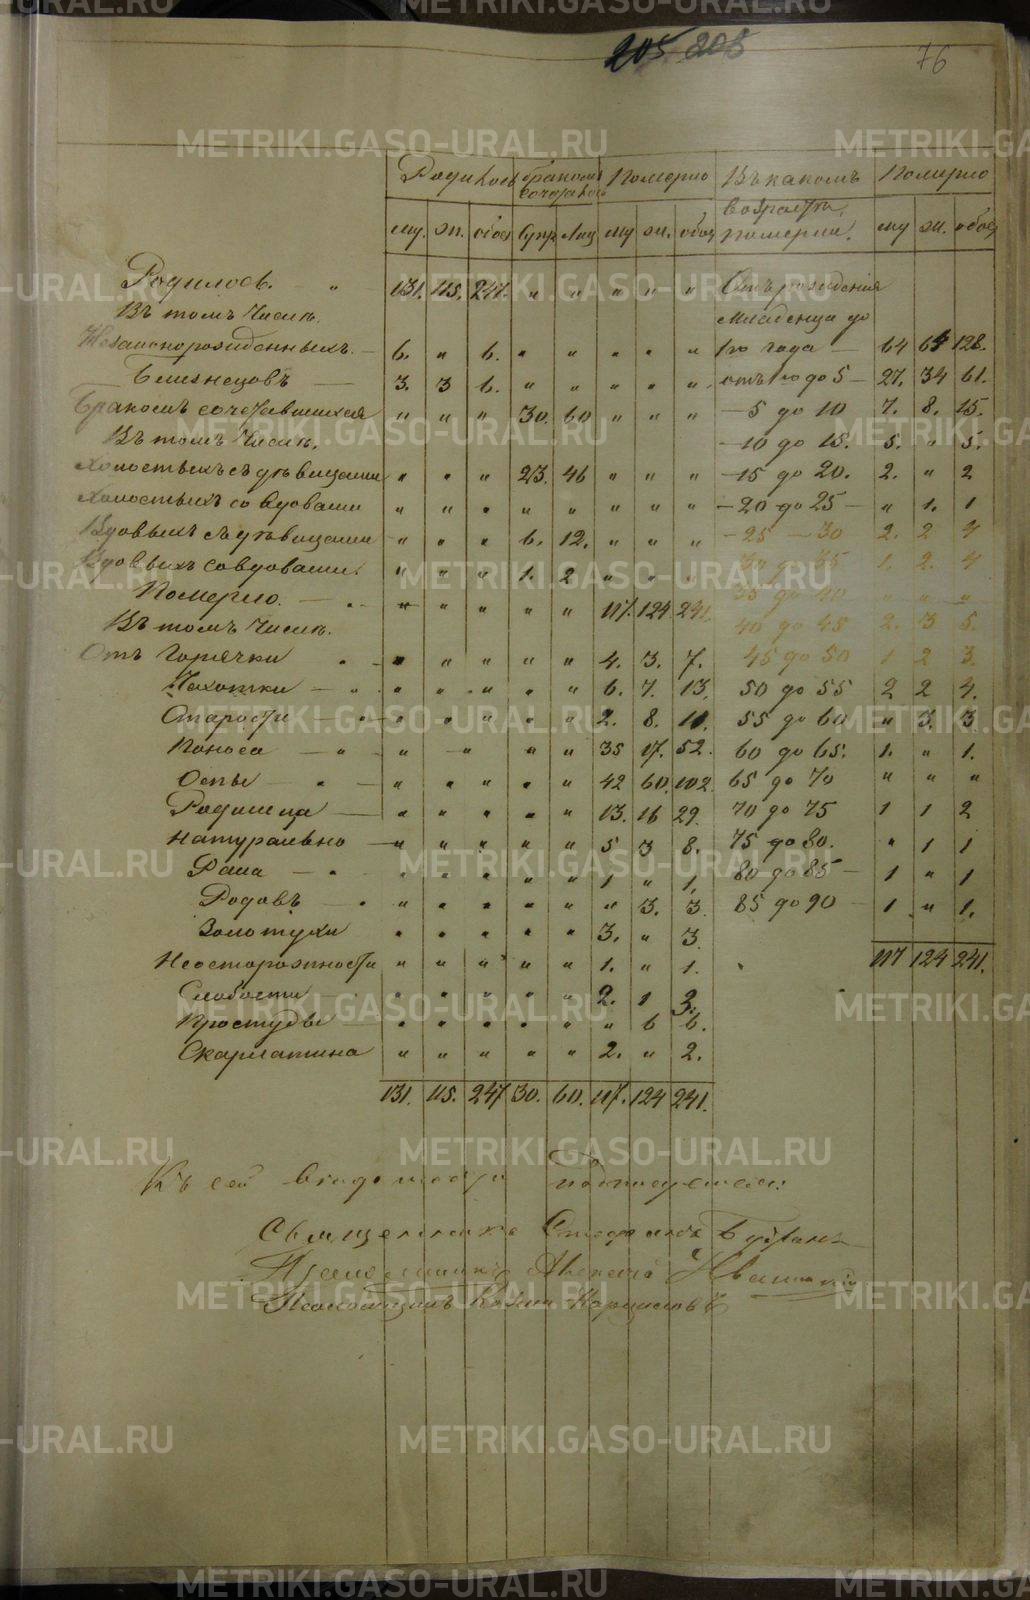 METRIKI.GASO-URAL.RU
205 205 76
Родилось Бракомъ сочеталось Померло Въ какомъ возрастѣ померли. Померло
му. ж. обоего Супр. Лиц му ж. обоего му ж. обоего
Родилось. — " 131. 115. 247. " " " " " Отъ рожденія
Въ томъ числѣ. младенца до
Незаконорожденныхъ. — 6. " 6. " " " " " 1го года — 64 64 128.
Близнецовъ — 3. 3 6. " " " " " отъ 1го до 5 — 27. 34 61.
Бракомъ сочетавшихся " " " 30. 60 " " " — 5 до 10 7. 8. 15.
Въ томъ числѣ. — 10 до 15. 5. " 5.
Холостыхъ съ дѣвицами " " " 23. 46 " " " — 15 до 20. 2. " 2
Холостыхъ со вдовами " " " " " " " " — 20 до 25 — " 1. 1
Вдовыхъ съ дѣвицами " " " 6. 12. " " " — 25 — 30 2. 2 4
Вдовыхъ со вдовами. " " " 1. 2 " " " 30 до 35 1. 2. 4
Померло. — " " " " " " 117. 124 241. 35 до 40 " " "
Въ томъ числѣ. 40 до 45 2. 3 5.
Отъ Горячки " " " " " " 4. 3. 7. 45 до 50 1 2 3.
Чахотки — " " " " " " 6. 7. 13. 50 до 55 2 2 4.
Старости — " " " " " " 2. 8. 10. 55 до 60 " 3. 3
Поноса — " " " " " 35 17. 52. 60 до 65. 1. " 1.
Оспы — " " " " " " 42 60. 102. 65 до 70 " " "
Родимца — " " " " " 13. 16 29. 70 до 75 1 1 2
Натурально — " " " " " 5 3 8. 75 до 80. " 1 1
Рака — " " " " " " 1 " 1, 80 до 85 — 1 " 1
Родовъ — " " " " " " " 3. 3. 85 до 90 — 1 " 1.
Золотухи " " " " " 3. " 3.
Неосторожности " " " " " 1. " 1. 117 124 241.
Слабости — " " " " " 2. 1 3.
Простуды — " " " " " " 6 6.
Скарлатина " " " " " 2. " 2.
131. 115. 247 30. 60. 117. 124 241.
Къ сей вѣдомости подписуемся:
Священникъ Стефанъ